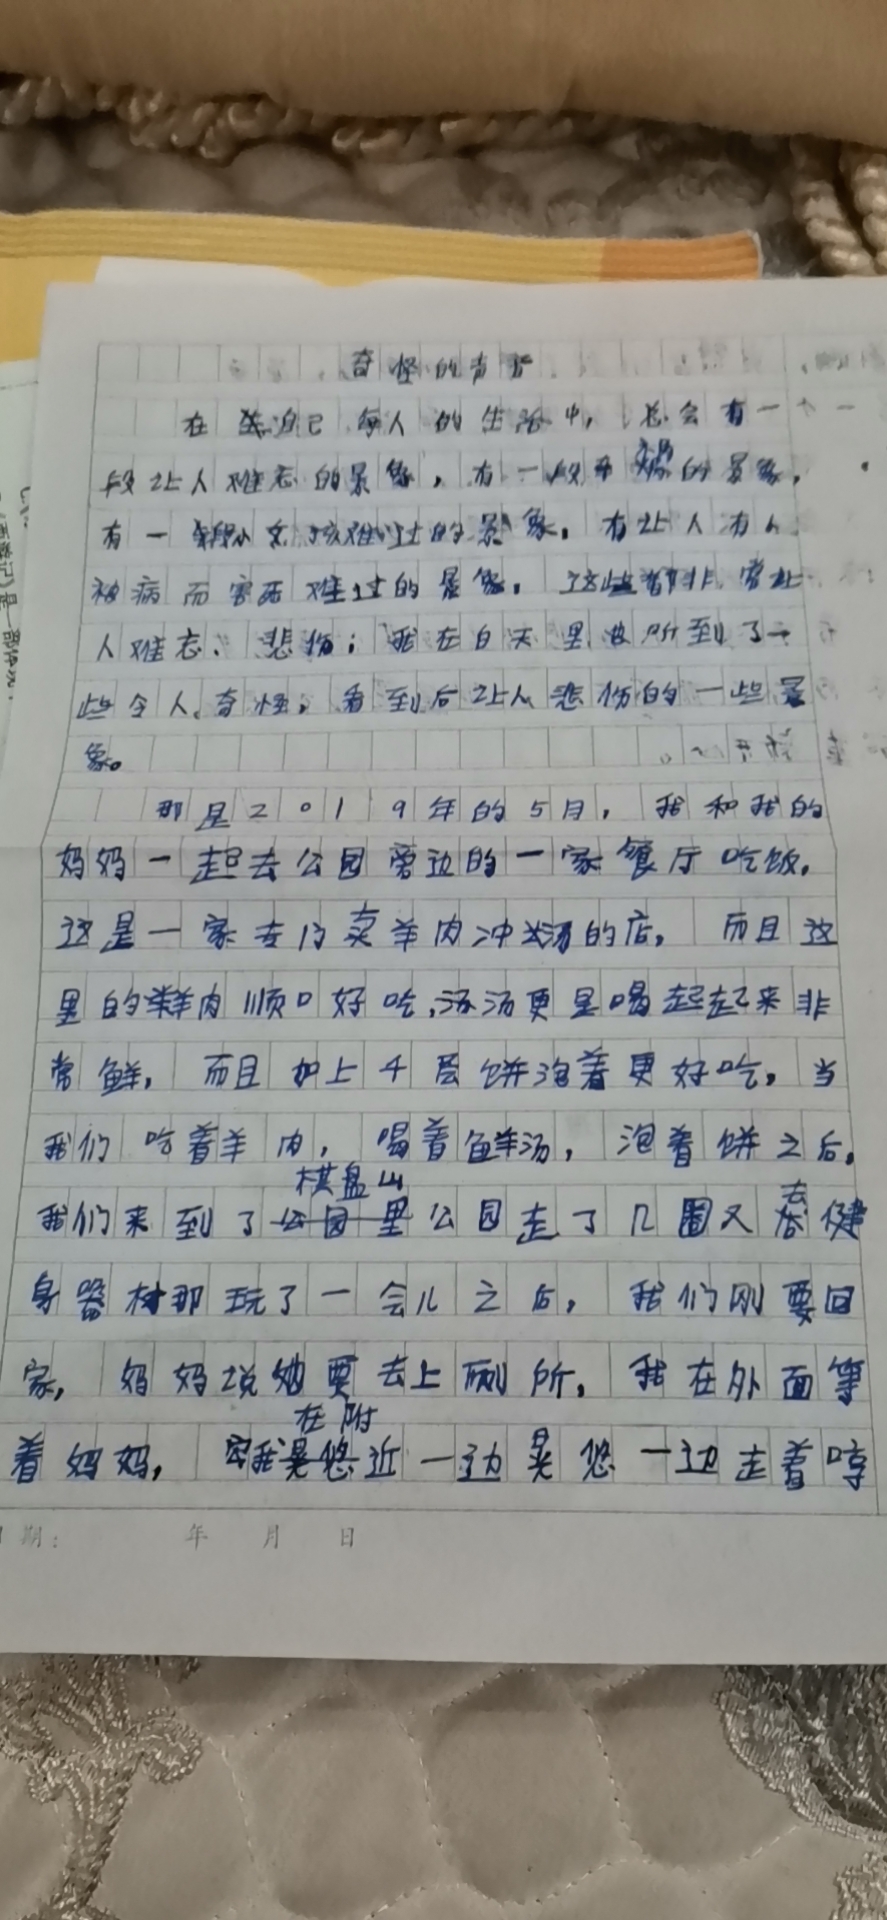 奇怪的声音
在 每人的生活中，总会有一
段让人难忘的景象，有一段 的景象，
有一 难过的景象。有让人有人
被病而害死难过的景象。这些都非常让
人难忘、悲伤；我在白天里 所到了一
些令人奇怪，看到后让人悲伤的一些景
象。
那是2019年的5月，我和我的
妈妈一起去公园旁边的一家餐厅吃饭。
这是一家专门卖羊肉冲汤的店，而且这
里的羊肉顺口好吃，汤更是喝起起来非
常鲜，而且加上千层饼泡着更好吃。当
我们吃着羊肉，喝着鲜汤，泡着饼之后。
棋盘山
我们来到了公园里公园走了几圈又去健
身器材那玩了一会儿之后，我们刚要回
家，妈妈说她要去上厕所。我在外面等
在附
着妈妈，我晃悠近一边晃悠一边走着哼
期： 年 月 日